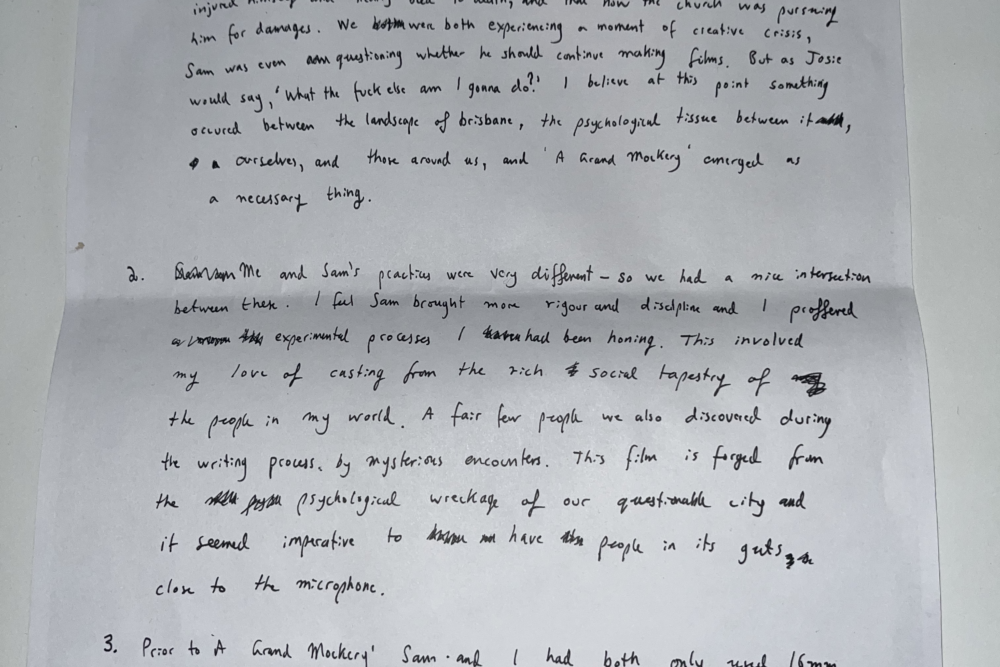 injured himself and being used to death, and that now the church was pursuing
him for damages. We were both experiencing a moment of creative crisis,
Sam was even questioning whether he should continue making films. But as Josie
would say, 'What the fuck else am I gonna do?' I believe at this point something
occured between the landscape of brisbane, the psychological tissue between it,
ourselves, and those around us, and 'A Grand Mockery' emerged as
a necessary thing.
2. Me and Sam's practices were very different – so we had a nice intersection
between these. I feel Sam brought more rigour and discipline and I proffered
experimental processes I had been honing. This involved
my love of casting from the rich social tapestry of
the people in my world. A fair few people we also discovered during
the writing process, by mysterious encounters. This film is forged from
the psychological wreckage of our questionable city and
it seemed imperative to have people in its guts,
close to the microphone.
3. Prior to 'A Grand Mockery' Sam and I had both only used 16mm